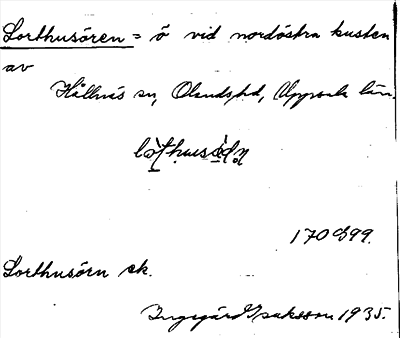 Lorthusören = ö vid nordöstra kusten
av
Hållnäs sn, Olandshd, Uppsala län.
170 C 99.
Lorthusörn ek.
Ingegärd Isaksson 1935.